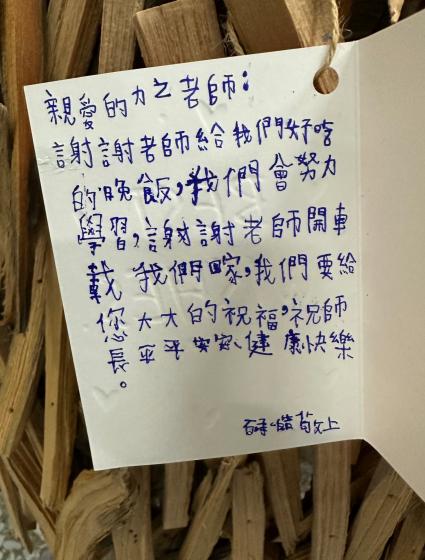 親愛的力之老師：
謝謝老師給我們好吃
的晚飯，我們會努力
學習，謝謝老師開車
載我們回家，我們要給
您大大的祝福，祝師
長平平安安、健康快樂
。
敬上